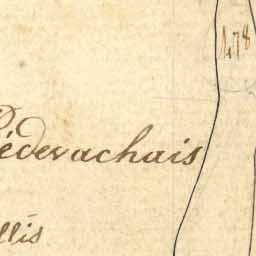 478
Pédevachais
llis